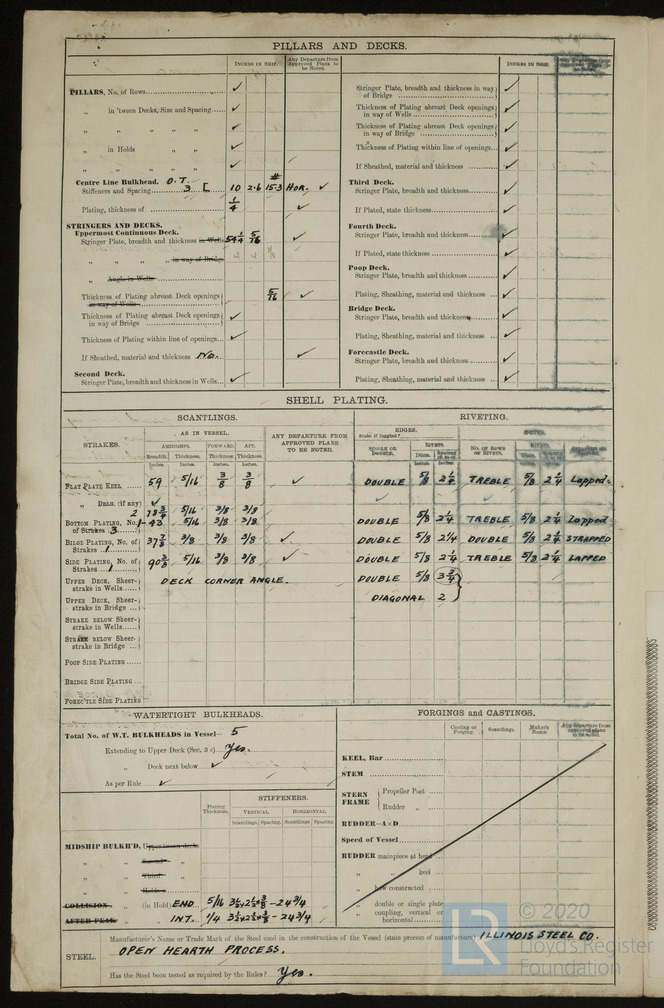 PILLARS AND DECKS.
INCHES IN SHIP.
Any Departure from Approved Plans to be Noted.
PILLARS, No. of Rows ✓
„ in 'tween Decks, Size and Spacing ✓
„ „ „ „ „ ✓
„ in Holds „ „ ✓
„ „ „ „ ✓
Centre Line Bulkhead. O.T.
Stiffeners and Spacing 3 [ 10 2·6 15·3# HOR. ✓
Plating, thickness of 1/4 ✓
STRINGERS AND DECKS.
Uppermost Continuous Deck.
Stringer Plate, breadth and thickness in Wells 54 1/4 5/16 ✓
„ „ „ „ in way of Bridge
„ Angle in Wells
Thickness of Plating abreast Deck openings in way of Wells 5/16 ✓
Thickness of Plating abreast Deck openings in way of Bridge ✓
Thickness of Plating within line of openings ✓
If Sheathed, material and thickness No. ✓
Second Deck.
Stringer Plate, breadth and thickness in Wells ✓
INCHES IN SHIP.
Any Departure from Approved Plans to be Noted.
Stringer Plate, breadth and thickness in way of Bridge ✓
Thickness of Plating abreast Deck openings in way of Wells ✓
Thickness of Plating abreast Deck openings in way of Bridge ✓
Thickness of Plating within line of openings ✓
If Sheathed, material and thickness ✓
Third Deck.
Stringer Plate, breadth and thickness ✓
If Plated, state thickness ✓
Fourth Deck.
Stringer Plate, breadth and thickness ✓
If Plated, state thickness ✓
Poop Deck.
Stringer Plate, breadth and thickness ✓
Plating, Sheathing, material and thickness ✓
Bridge Deck.
Stringer Plate, breadth and thickness ✓
Plating, Sheathing, material and thickness ✓
Forecastle Deck.
Stringer Plate, breadth and thickness ✓
Plating, Sheathing, material and thickness ✓
SHELL PLATING.
SCANTLINGS. RIVETING.
STRAKES. AS IN VESSEL. ANY DEPARTURE FROM APPROVED PLANS TO BE NOTED. EDGES. BUTTS.
AMIDSHIPS. FORWARD. AFT. State if joggled? SINGLE OR DOUBLE. RIVETS. No. OF ROWS OF RIVETS. RIVETS.
Breadth. Thickness. Thickness. Thickness. Diam. Diam.
Inches. Inches. Inches. Inches. Inches. Inches.
FLAT PLATE KEEL 59 5/16 3/8 3/8 ✓ DOUBLE 5/8 2 1/4 TREBLE 5/8 2 1/4 Lapped.
„ DBLG. (if any) ✓
2 78 3/4 5/16 3/8 3/8
BOTTOM PLATING, No. of Strakes 3 1- 43 5/16 3/8 3/8 DOUBLE 5/8 2 1/4 TREBLE 5/8 2 1/4 Lapped
BILGE PLATING, No. of Strakes 1 37 7/8 3/8 3/8 3/8 ✓ DOUBLE 5/8 2 1/4 DOUBLE 5/8 2 1/4 STRAPPED
SIDE PLATING, No. of Strakes 1 90 3/8 5/16 3/8 3/8 ✓ DOUBLE 5/8 2 1/4 TREBLE 5/8 2 1/4 LAPPED
UPPER DECK, Sheer-strake in Wells DECK CORNER ANGLE. DOUBLE 5/8 3 3/4
UPPER DECK, Sheer-strake in Bridge DIAGONAL 2
STRAKE BELOW Sheer-strake in Wells
STRAKE BELOW Sheer-strake in Bridge
POOP SIDE PLATING
BRIDGE SIDE PLATING
FORECTLE SIDE PLATING
WATERTIGHT BULKHEADS.
Total No. of W.T. BULKHEADS in Vessel— 5
Extending to Upper Deck (Sec. 3 c) Yes.
„ Deck next below ✓
As per Rule ✓
STIFFENERS.
Plating Thickness. VERTICAL. HORIZONTAL.
Scantlings. Spacing. Scantlings. Spacing.
MIDSHIP BULKH'D, Uppertween deck
„ „ Second „
„ „ Third „
„ „ Holds „
COLLISION „ (in Hold) END 5/16 3 1/2 x 2 1/2 x 3/8 - 24 3/4 ✓
AFTER PEAK „ „ INT. 1/4 3 1/2 x 2 1/2 x 3/8 - 24 3/4 ✓
FORGINGS and CASTINGS.
Casting or Forging. Scantlings. Maker's Name. Any departure from approved plans to be noted.
KEEL, Bar
STEM
STERN FRAME { Propeller Post
Rudder „
RUDDER—A×D
Speed of Vessel
RUDDER mainpiece at head
„ „ heel
„ how constructed
„ double or single plate
„ coupling, vertical or horizontal
STEEL.
Manufacturer's Name or Trade Mark of the Steel used in the construction of the Vessel (state process of manufacture) ILLINOIS STEEL CO.
OPEN HEARTH PROCESS.
Has the Steel been tested as required by the Rules? Yes.
LR
© 2020
Lloyd's Register
Foundation